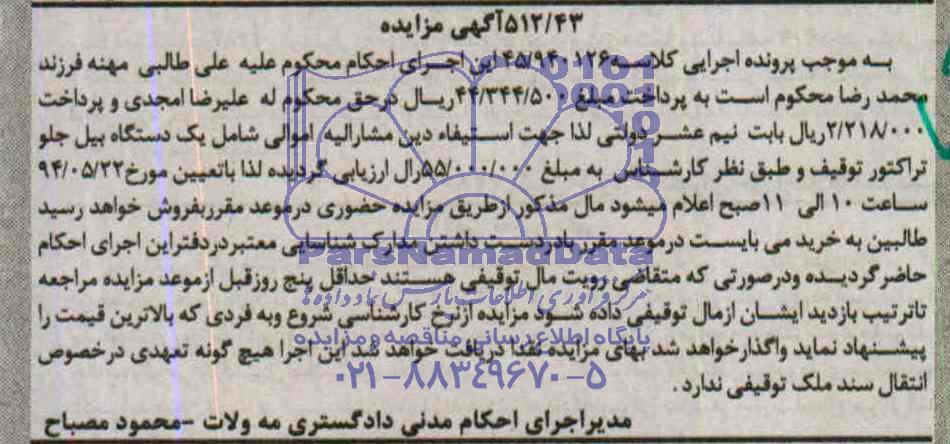 ۵۱۲/۴۳آگهی مزایده
به موجب پرونده اجرایی کلاسه۴۵/۹۴۰۱۲۶ این اجرای احکام محکوم علیه علی طالبی مهنه فرزند
محمد رضا محکوم است به پرداخت مبلغ ۴۴/۳۴۴/۵۰۰ریال درحق محکوم له علیرضا امجدی و پرداخت
۲/۲۱۸/۰۰۰ریال بابت نیم عشر دولتی لذا جهت استیفاء دین مشارالیه اموالی شامل یک دستگاه بیل جلو
تراکتور توقیف و طبق نظر کارشناس به مبلغ ۵۵/۰۰۰/۰۰۰رال ارزیابی گردیده لذا باتعیین مورخ۹۴/۰۵/۲۲
ساعت ۱۰ الی ۱۱صبح اعلام میشود مال مذکور ازطریق مزایده حضوری درموعد مقرربفروش خواهد رسید
طالبین به خرید می بایست درموعد مقرر بادردست داشتن مدارک شناسایی معتبردردفتراین اجرای احکام
حاضرگردیده ودرصورتی که متقاضی رویت مال توقیفی هستند حداقل پنج روزقبل ازموعد مزایده مراجعه
تاترتیب بازدید ایشان ازمال توقیفی داده شود مزایده ازنرخ کارشناسی شروع وبه فردی که بالاترین قیمت را
پیشنهاد نماید واگذارخواهد شد بهای مزایده نقدا دریافت خواهد شد این اجرا هیچ گونه تعهدی درخصوص
انتقال سند ملک توقیفی ندارد.
مدیراجرای احکام مدنی دادگستری مه ولات -محمود مصباح
ParsNamadData
مرکز فرآوری اطلاعات پارس نماد داده ها
پایگاه اطلاع رسانی مناقصه و مزایده
۰۲۱-۸۸۳۴۹۶۷۰-۵